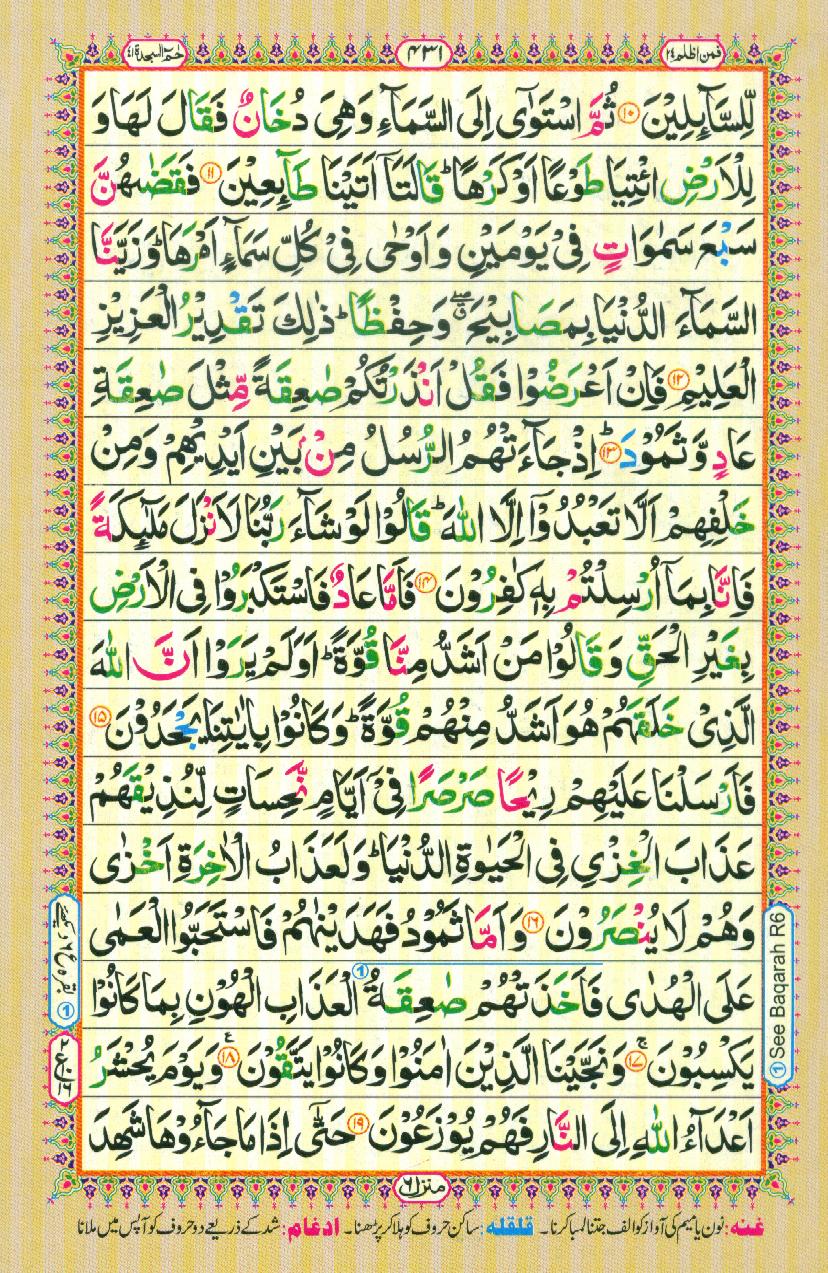 فمن اظلم ٢٤
٤٣١
حٰمٓ السجدة ٤١
لِّلسَّآىِٕلِیْنَ ۝١٠ ثُمَّ اسْتَوٰۤی اِلَی السَّمَآءِ وَهِیَ دُخَانٌ فَقَالَ لَهَا وَ
لِلْاَرْضِ ائْتِیَا طَوْعًا اَوْ كَرْهًا ؕ قَالَتَاۤ اَتَیْنَا طَآىِٕعِیْنَ ۝١١ فَقَضٰىهُنَّ
سَبْعَ سَمٰوَاتٍ فِیْ یَوْمَیْنِ وَاَوْحٰی فِیْ كُلِّ سَمَآءٍ اَمْرَهَا ؕ وَزَیَّنَّا
السَّمَآءَ الدُّنْیَا بِمَصَابِیْحَ ۖۗ وَحِفْظًا ؕ ذٰلِكَ تَقْدِیْرُ الْعَزِیْزِ
الْعَلِیْمِ ۝١٢ فَاِنْ اَعْرَضُوْا فَقُلْ اَنْذَرْتُكُمْ صٰعِقَةً مِّثْلَ صٰعِقَةِ
عَادٍ وَّثَمُوْدَ ؕ۝١٣ اِذْ جَآءَتْهُمُ الرُّسُلُ مِنْۢ بَیْنِ اَیْدِیْهِمْ وَمِنْ
خَلْفِهِمْ اَلَّا تَعْبُدُوْۤا اِلَّا اللّٰهَ ؕ قَالُوْا لَوْ شَآءَ رَبُّنَا لَاَنْزَلَ مَلٰٓىِٕكَةً
فَاِنَّا بِمَاۤ اُرْسِلْتُمْ بِهٖ كٰفِرُوْنَ ۝١٤ فَاَمَّا عَادٌ فَاسْتَكْبَرُوْا فِی الْاَرْضِ
بِغَیْرِ الْحَقِّ وَقَالُوْا مَنْ اَشَدُّ مِنَّا قُوَّةً ؕ اَوَلَمْ یَرَوْا اَنَّ اللّٰهَ
الَّذِیْ خَلَقَهُمْ هُوَ اَشَدُّ مِنْهُمْ قُوَّةً ؕ وَكَانُوْا بِاٰیٰتِنَا یَجْحَدُوْنَ ۝١٥
فَاَرْسَلْنَا عَلَیْهِمْ رِیْحًا صَرْصَرًا فِیْۤ اَیَّامٍ نَّحِسَاتٍ لِّنُذِیْقَهُمْ
عَذَابَ الْخِزْیِ فِی الْحَیٰوةِ الدُّنْیَا ؕ وَلَعَذَابُ الْاٰخِرَةِ اَخْزٰی
وَهُمْ لَا یُنْصَرُوْنَ ۝١٦ وَاَمَّا ثَمُوْدُ فَهَدَیْنٰهُمْ فَاسْتَحَبُّوا الْعَمٰی
عَلَی الْهُدٰی فَاَخَذَتْهُمْ صٰعِقَةُ ① الْعَذَابِ الْهُوْنِ بِمَا كَانُوْا
یَكْسِبُوْنَ ۚ۝١٧ وَنَجَّیْنَا الَّذِیْنَ اٰمَنُوْا وَكَانُوْا یَتَّقُوْنَ ۠۝١٨ وَیَوْمَ یُحْشَرُ
اَعْدَآءُ اللّٰهِ اِلَی النَّارِ فَهُمْ یُوْزَعُوْنَ ۝١٩ حَتّٰۤی اِذَا مَا جَآءُوْهَا شَهِدَ
① See Baqarah R6
① بقرہ ع ٦ دیکھئے
منزل ٦
غنہ: نون یا میم کی آواز کو الف جتنا لمبا کرنا۔ قلقلہ: ساکن حروف کو ہلا کر پڑھنا۔ ادغام: شد کے ذریعے دو حروف کو آپس میں ملانا